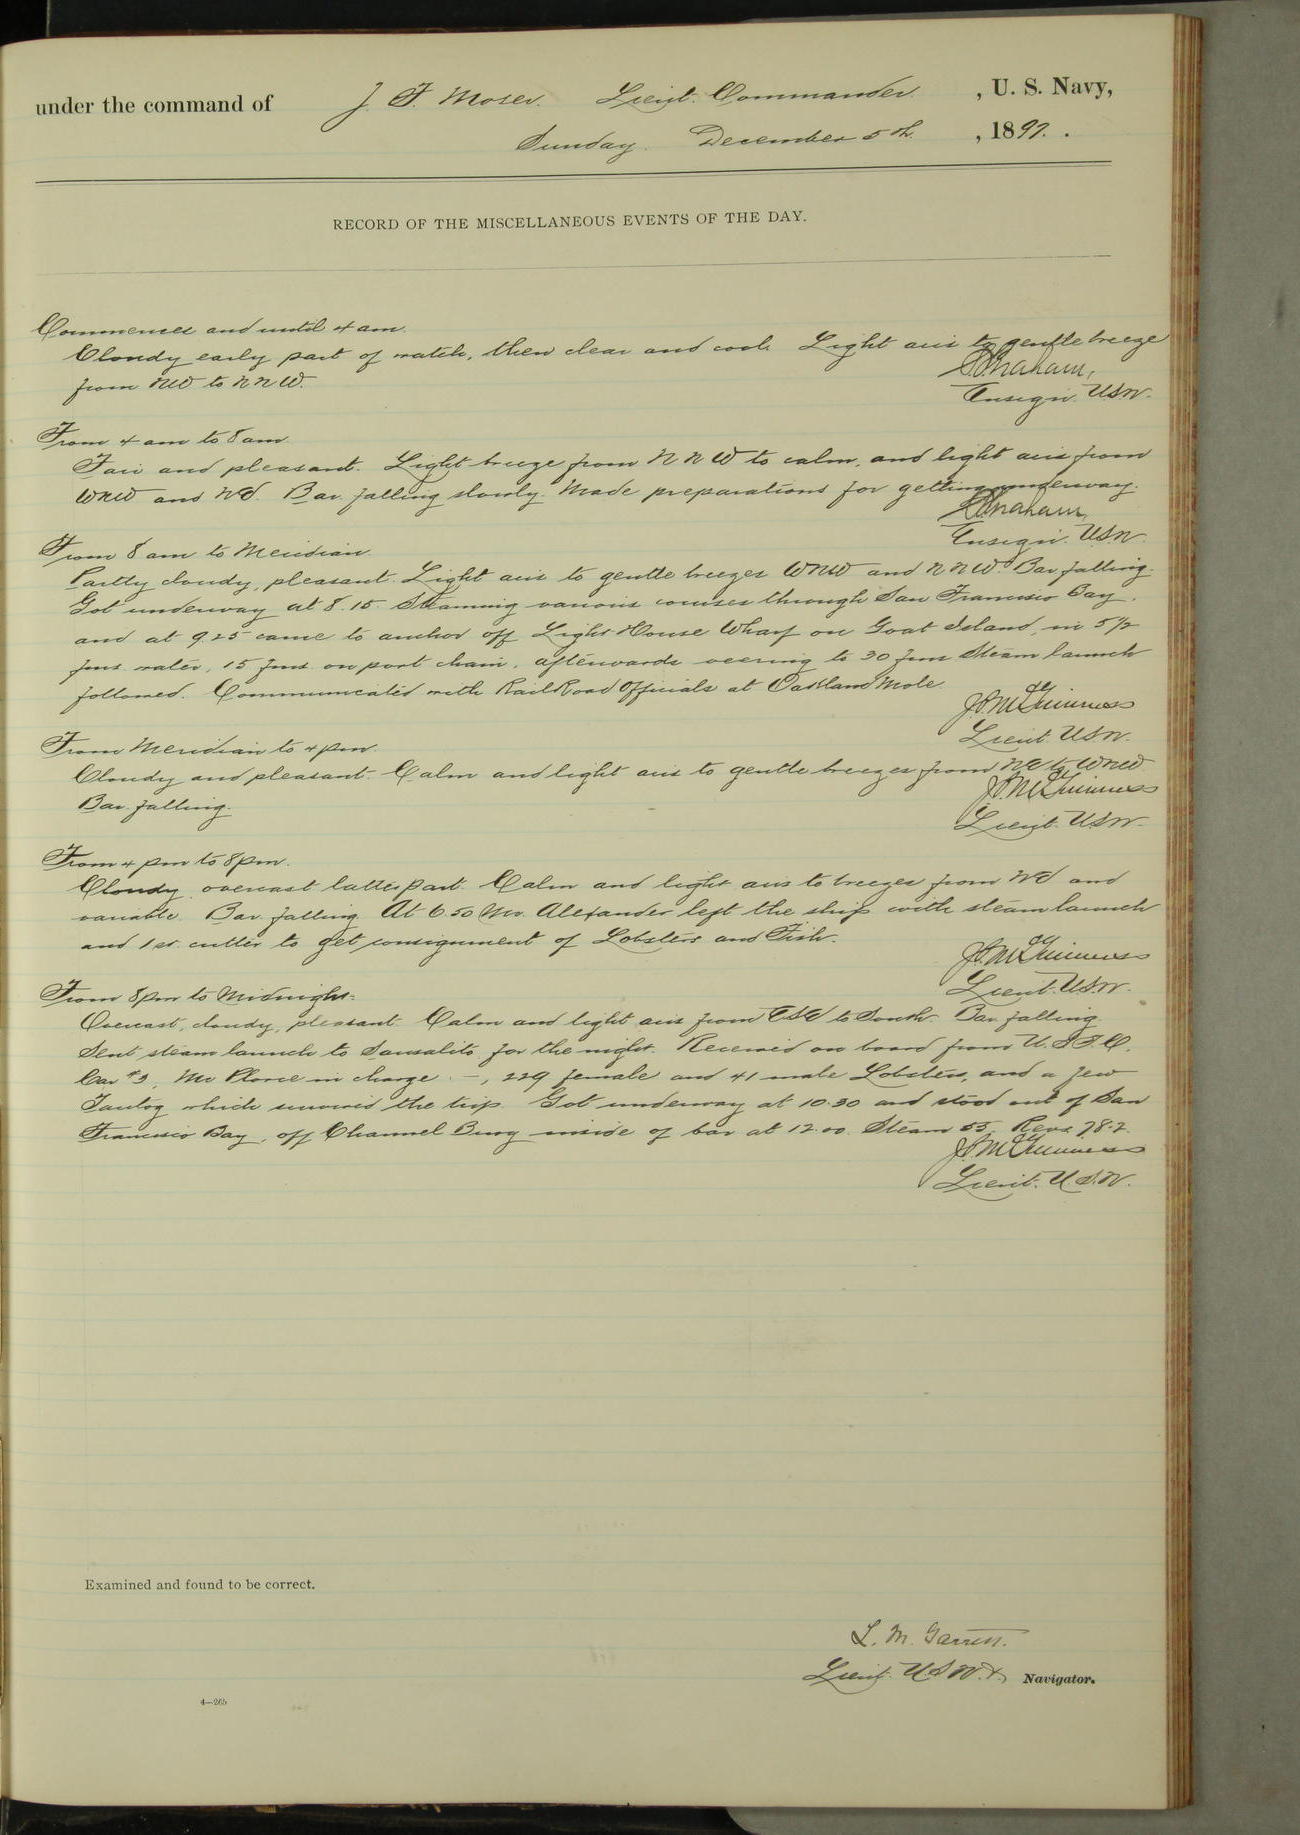 under the command of J. F. Moser. Lieut. Commander , U. S. Navy,
Sunday. December 5th. , 1897. .
RECORD OF THE MISCELLANEOUS EVENTS OF THE DAY.
Commences and until 4 am.
Cloudy early part of watch, then clear and cool. Light airs to gentle breeze
from NW to NNW.
Ensign. USN.
From 4 am to 8 am
Fair and pleasant. Light breeze from NNW to calm, and light airs from
WNW and Nd. Bar. falling slowly. Made preparations for getting underway.
Ensign. USN.
From 8 am to Meridian.
Partly cloudy, pleasant. Light airs to gentle breezes WNW and NNW. Bar. falling.
Got underway at 8.15. Steaming various courses through San Francisco Bay,
and at 9.25 came to anchor off Light House Wharf on Goat Island, in 5 1/2
fms water, 15 fms on port chain, afterwards veering to 30 fms Steam launch
followed. Communicated with Rail Road Officials at Oakland Mole.
Lieut. USN.
From Meridian to 4 pm.
Cloudy and pleasant. Calm and light airs to gentle breezes from NE to WNW
Bar. falling.
Lieut. USN.
From 4 pm to 8 pm.
Cloudy, overcast latter part. Calm and light airs to breezes from Nd and
variable. Bar. falling. At 6.50 Mr. Alexander left the ship with steam launch
and 1st. cutter to get consignment of Lobsters and Fish.
Lieut. USN.
From 8 pm to Midnight.
Overcast, cloudy, pleasant. Calm and light airs from ESE to South. Bar falling.
Sent steam launch to Sausalito for the night. Received on board from U.S.F.C.
Car #3, Mr in charge -, 229 female and 41 male Lobsters, and a few
Tautog which survived the trip. Got underway at 10.30 and stood out of San
Francisco Bay, off Channel Buoy inside of bar at 12.00. Steam 55, Revs 78.2.
Lieut. U.S.N.
Examined and found to be correct.
L. M. Garrett.
Lieut. U.S.N. Navigator.
4—265